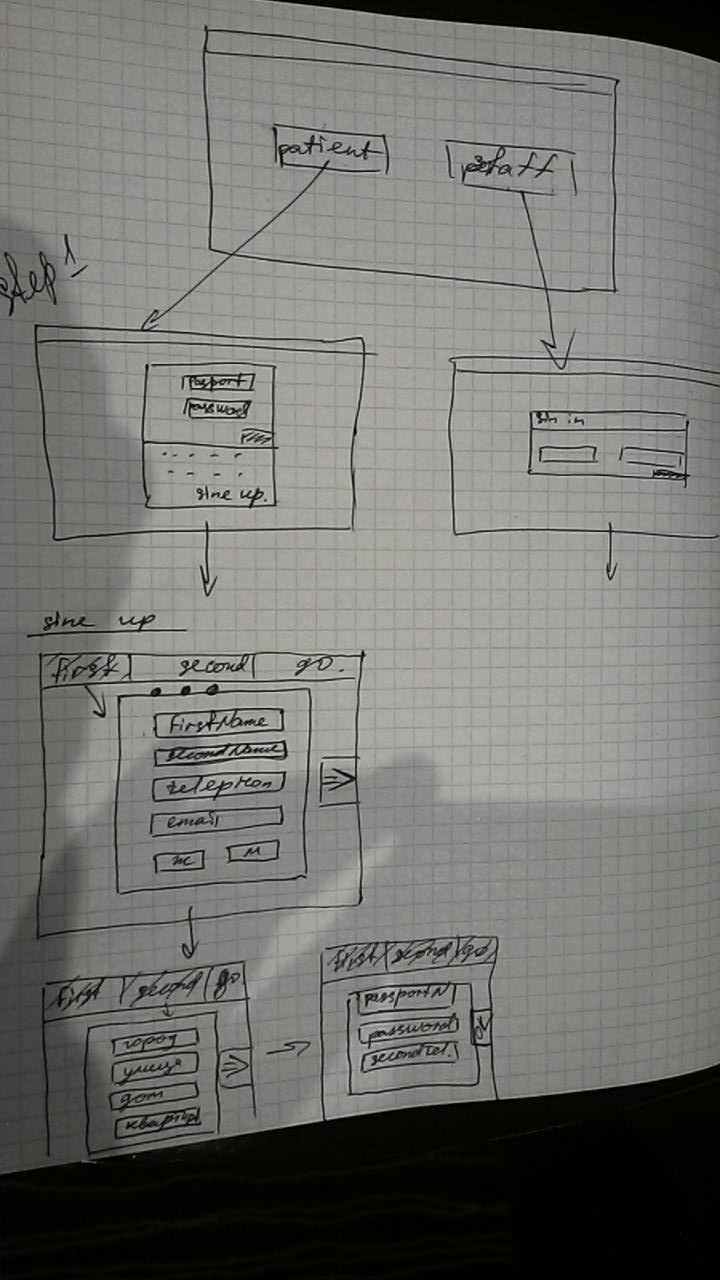 patient
staff
step 1
pasport
password
sine up.
sin in
sine up
first second go.
firstName
secondName
telephon
email
ж м
first second go
город
улица
дом
квартира
first second go
passportN
password
secondtel.